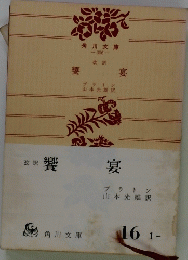 角川文庫
改訳
饗宴
プラトン
山本光雄訳
改訳 饗宴
プラトン
山本光雄訳
角川文庫
16 1-